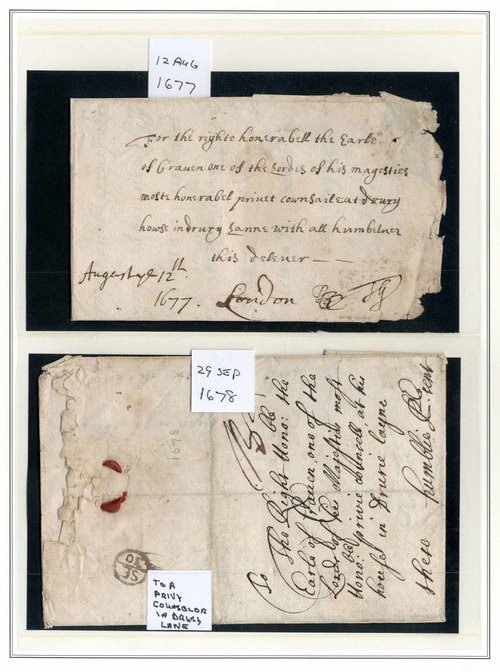 12 AUG
1677
For the righte honerabell the Earle
of Craven one of the Lordes of his magesties
moste honerabel privet counsaile at drury
howse in drury lanne with all humbelner
this deliver
August ye 12th
1677.
London
29 SEP
1678
1678
To The Right Hono: ble the
Earle of Craven, one of the
Lords of his Majesties most
Hono: ble privie Councell, at his
house in Drurie layne
these humblie
SE
30
TO A
PRIVY
COUNSELOR
IN DRURY
LANE